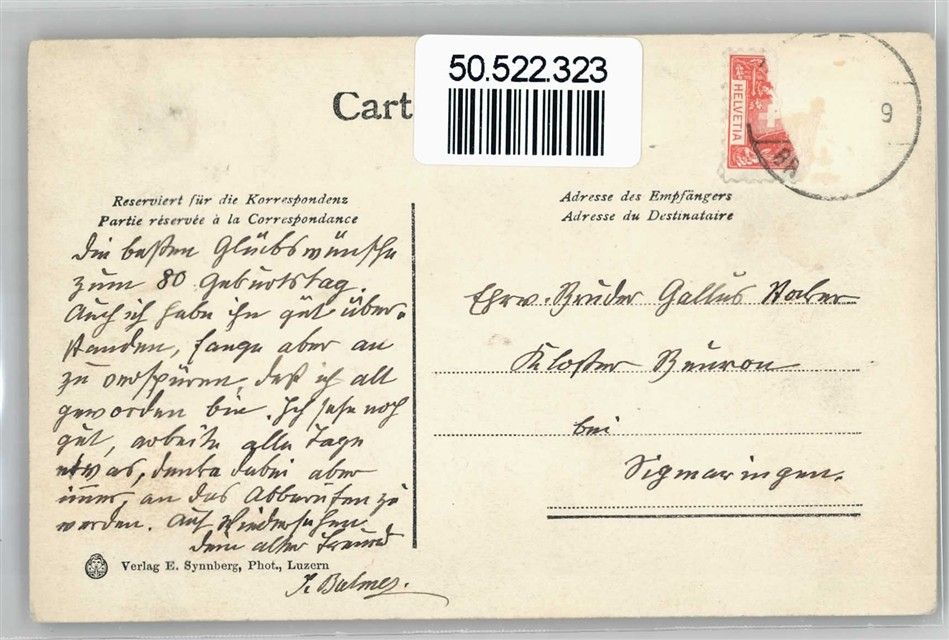 50.522.323
Cart
HELVETIA
BR
9
Reserviert für die Korrespondenz
Partie réservée à la Correspondance
Adresse des Empfängers
Adresse du Destinataire
Die besten Glückswünsche
zum 80 Geburtstag.
Auch ich habe ihn gut über-
standen, fange aber an
zu verspüren, daß ich alt
geworden bin. Ich sehe noch
gut, arbeite alle Tage
etwas, denke dabei aber
immer, an das Abberufen zu
werden. Auf Wiedersehen
dein alter Freund
J. Balmer.
Ehrw. Bruder Gallus
Kloster Beuron
bei
Sigmaringen.
Verlag E. Synnberg, Phot., Luzern